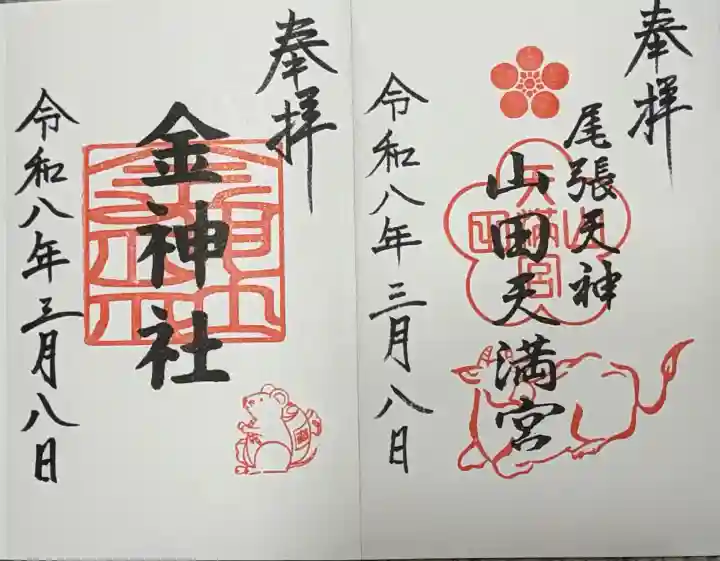 奉拝
尾張天神
山田天満宮
令和八年三月八日
奉拝
金神社
令和八年三月八日